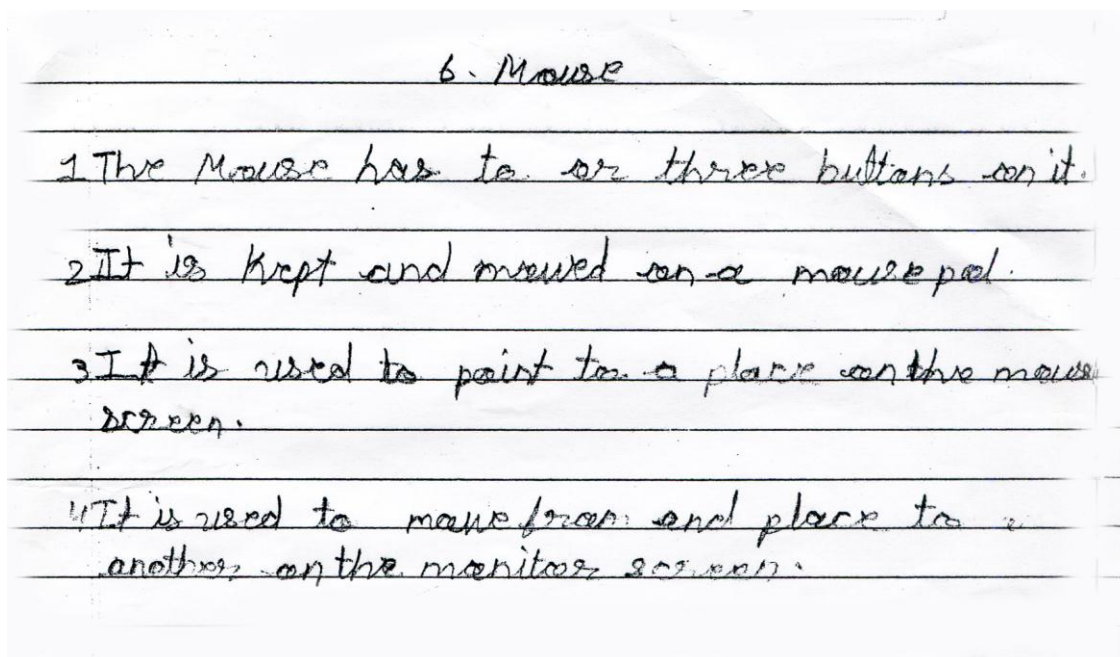 6. Mouse
1 The Mouse has to or three buttons on it.
2 It is Kept and mowed on a mouse pad.
3 It is used to point to a place on the mouse
screen.
4 It is used to mowe from end place to
another on the monitor screen.